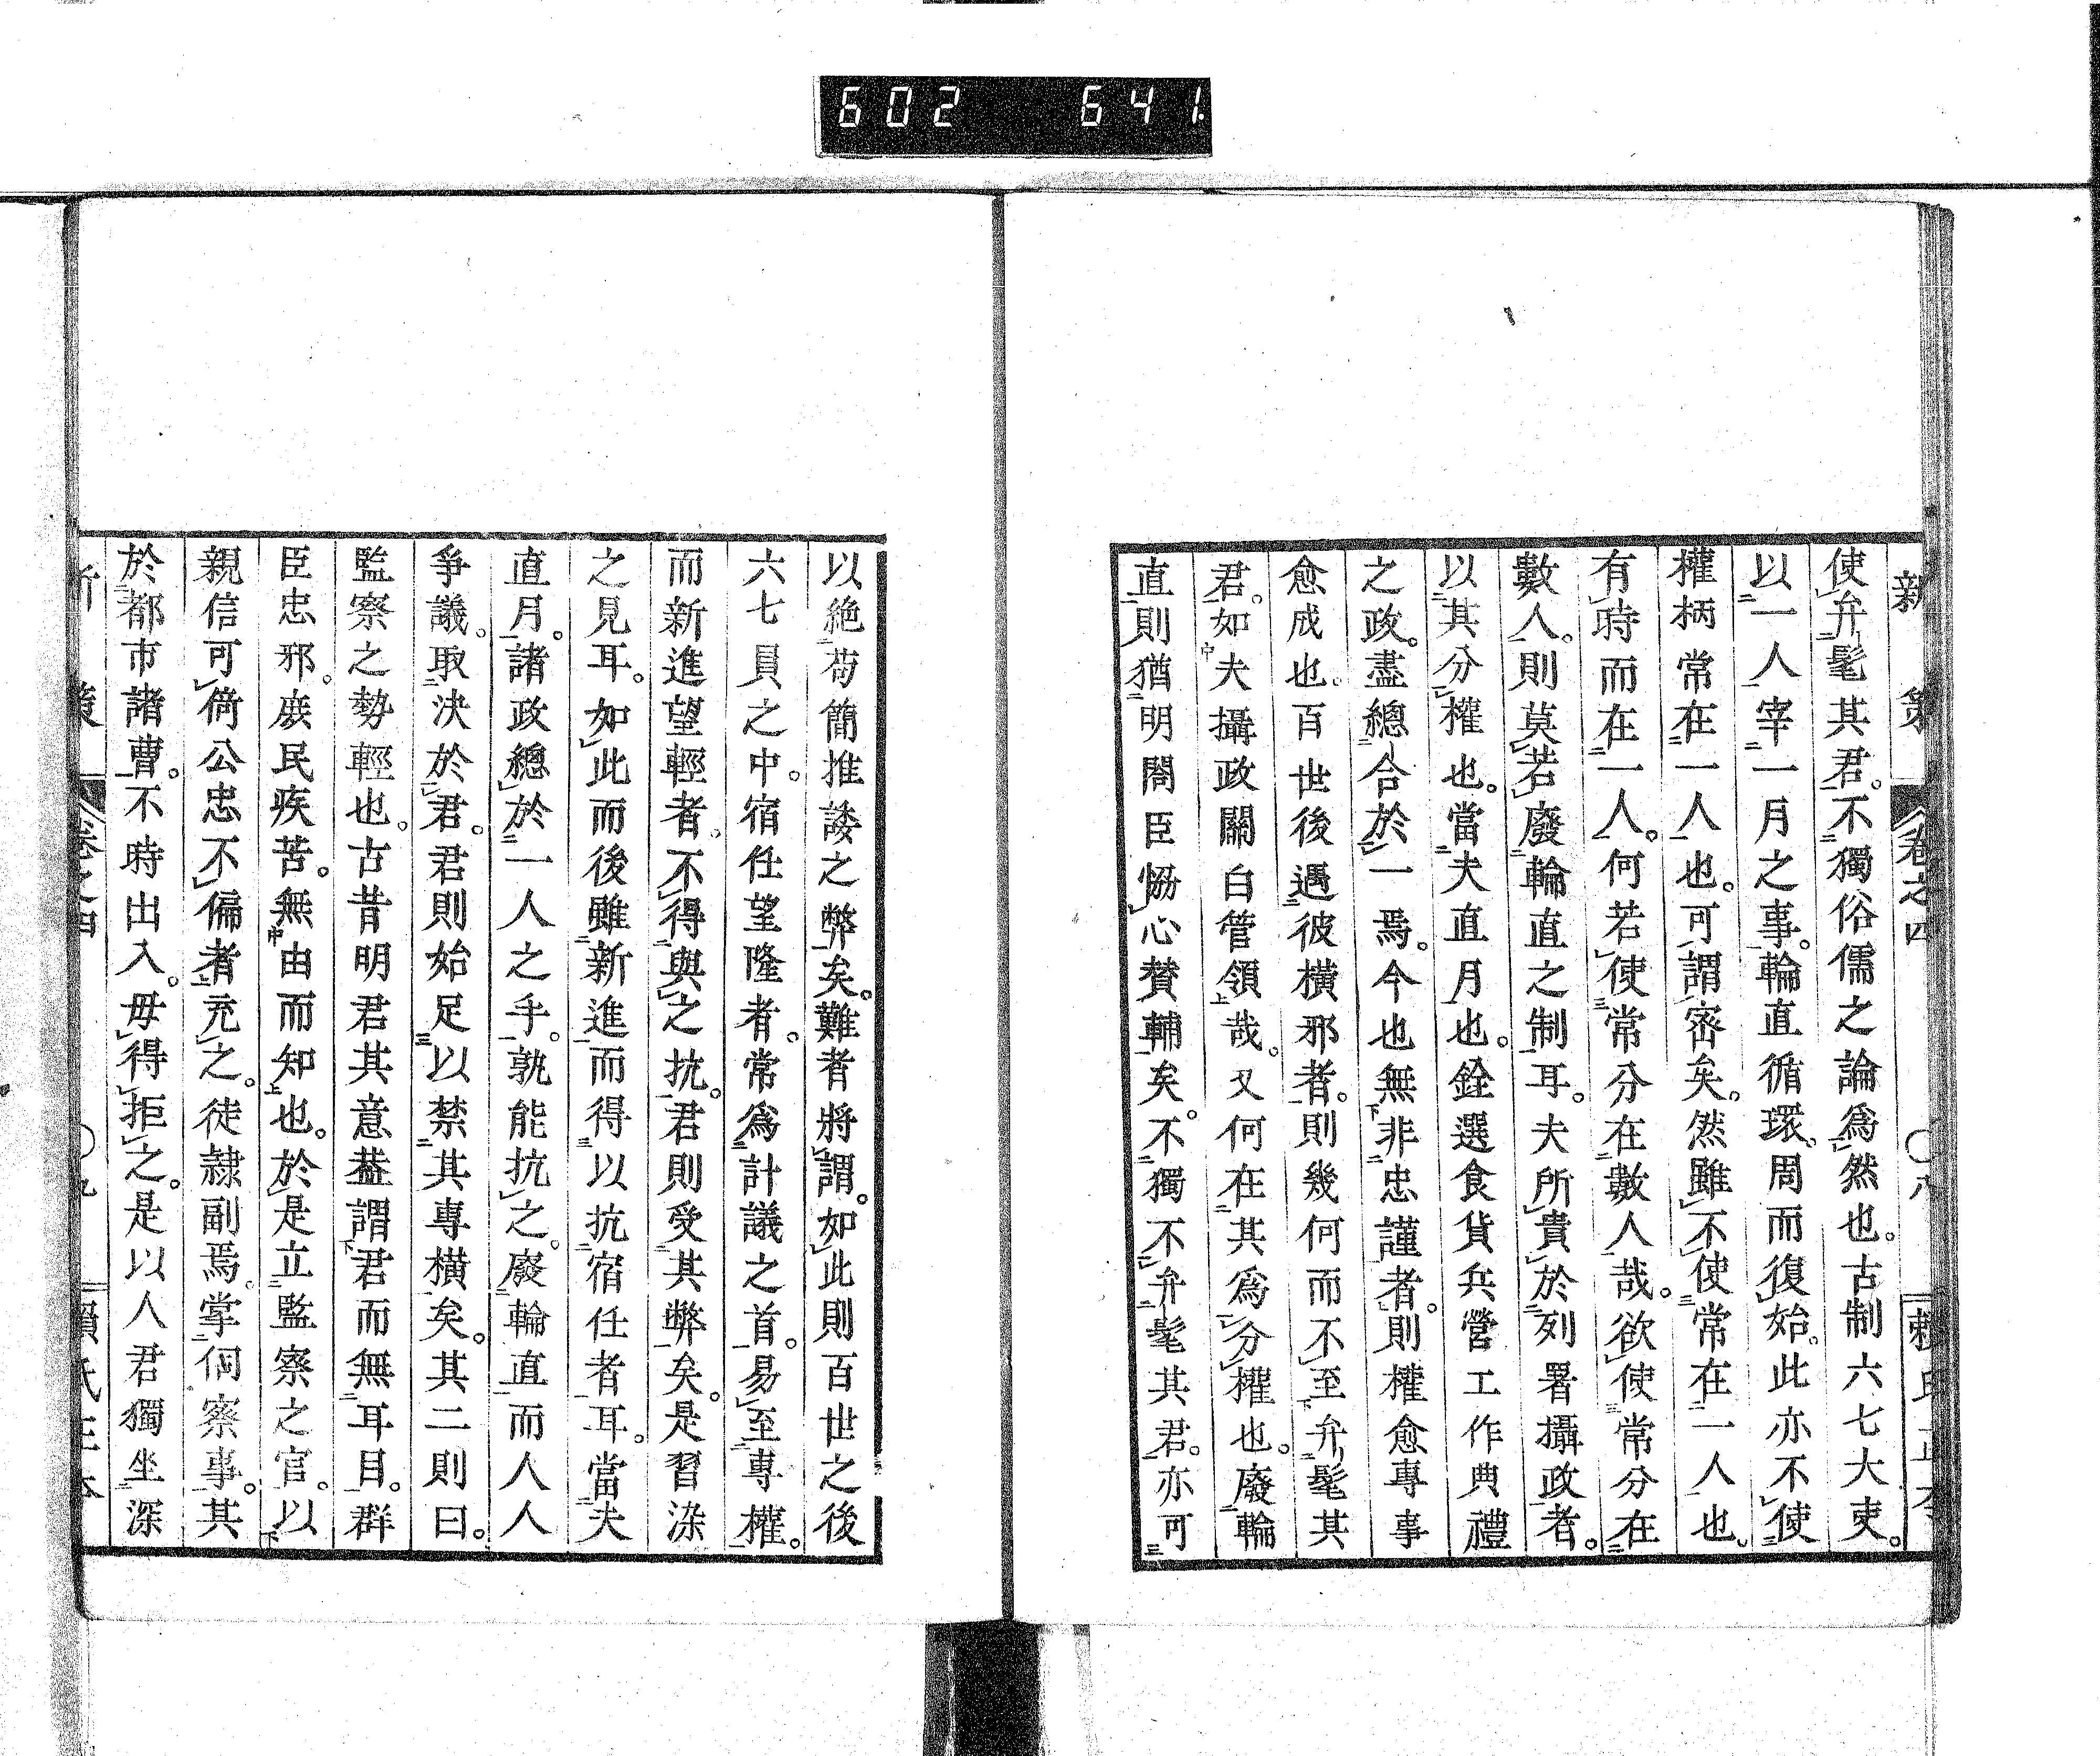 602 641.
新策 卷之四 〇八 賴氏正本
使弁髦其君。不獨俗儒之論爲然也。古制六七大吏。
以一人宰一月之事。輪直循環。周而復始。此亦不使
權柄常在一人也。可謂密矣。然雖不使常在一人也。
有時而在一人。何若使常分在數人哉。欲使常分在
數人。則莫若廢輪直之制耳。夫所貴於列署攝政者。
以其分權也。當夫直月也。銓選食貨兵營工作典禮
之政。盡總合於一焉。今也無非忠謹者。則權愈專事
愈成也。百世後遇彼橫邪者。則幾何而不至弁髦其
君。如夫攝政關白管領哉。又何在其爲分權也。廢輪
直則猶明閤臣恊心贊輔矣。不獨不弁髦其君。亦可
以絶苟簡推諉之弊矣。難者將謂。如此則百世之後
六七員之中。宿任望隆者。常爲計議之首。易至專權。
而新進望輕者。不得與之抗。君則受其弊矣。是習染
之見耳。如此而後雖新進而得以抗宿任者耳。當夫
直月。諸政總於一人之手。孰能抗之。廢輪直而人人
爭議。取決於君。君則始足以禁其專橫矣。其二則曰。
監察之勢輕也。古昔明君其意葢謂君而無耳目。群
臣忠邪。庶民疾苦。無由而知也。於是立監察之官。以
親信可倚公忠不偏者充之。徒隷副焉。掌伺察事。其
於都市諸曹。不時出入。毋得拒之。是以人君獨坐深
新策 卷之四 〇九 賴氏正本